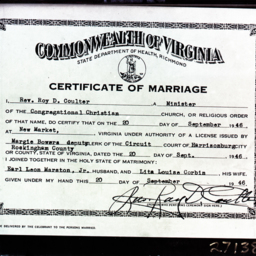 COMMONWEALTH OF VIRGINIA
STATE DEPARTMENT OF HEALTH, RICHMOND
CERTIFICATE OF MARRIAGE
I, Rev. Roy D. Coulter A Minister
OF THE Congregational Christian CHURCH, OR RELIGIOUS ORDER
OF THAT NAME, DO CERTIFY THAT ON THE 20 DAY OF September 1946, AT
New Market, VIRGINIA UNDER AUTHORITY OF A LICENSE ISSUED BY
Margie Bowers deputy CLERK OF THE Circuit COURT OF Harrisonburg CITY
Rockingham County
OR COUNTY, OF VIRGINIA, DATED THE 20 DAY OF Sept. 1946
I JOINED TOGETHER IN THE HOLY STATE OF MATRIMONY:
Karl Leon Marston, Jr. HUSBAND, AND Lita Louise Corbin HIS WIFE
GIVEN UNDER MY HAND THIS 20 DAY OF September 1946
BE DELIVERED BY THE CELEBRANT TO THE PERSONS MARRIED
27138